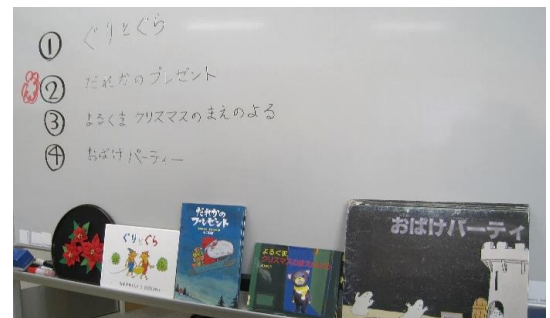 ① ぐりとぐら
② だれかのプレゼント
③ よるくま クリスマスのまえのよる
④ おばけパーティー
ぐりとぐら
だれかの
プレゼント
よるくま
クリスマスのまえのよる
おばけパーティ